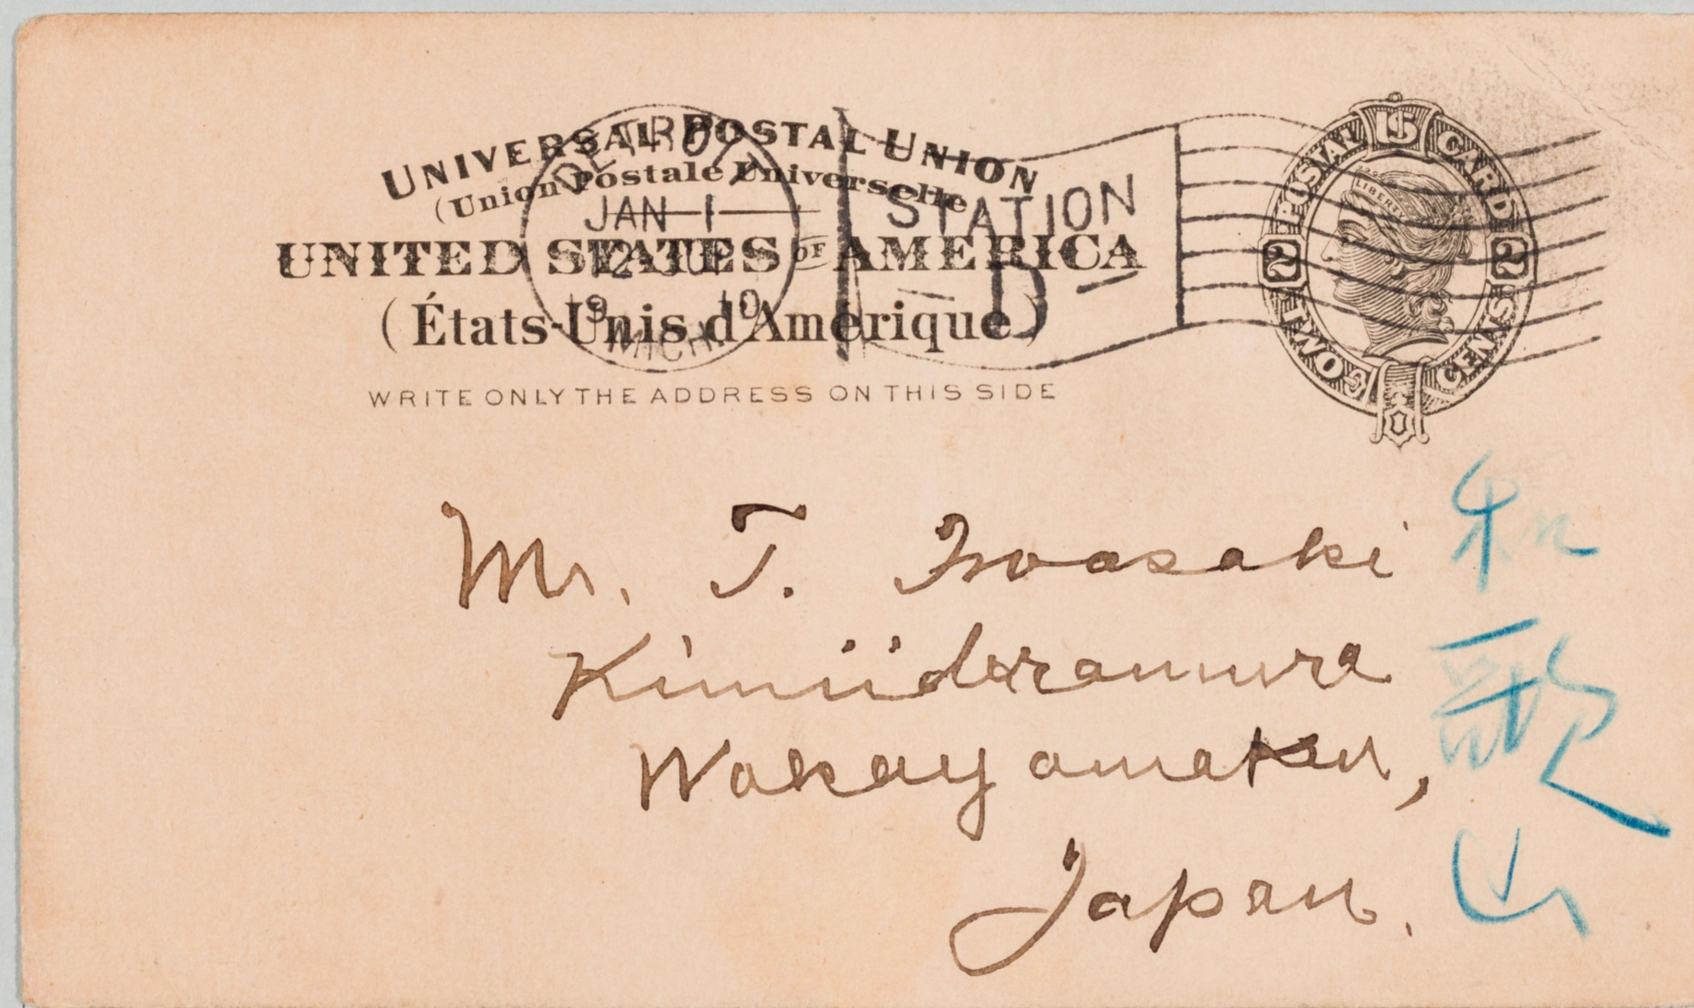 UNIVERSAL POSTAL UNION
(Union Postale Universelle
UNITED STATES OF AMERICA
(États-Unis d'Amérique)
WRITE ONLY THE ADDRESS ON THIS SIDE
DETROIT
JAN 1
19 10
MICH.
STATION
D
U.S. POSTAL CARD
TWO CENTS
2 2
LIBERTY
Mr. T. Iwasaki
Kimiideramura
Wakayamaken,
Japan.
和歌山